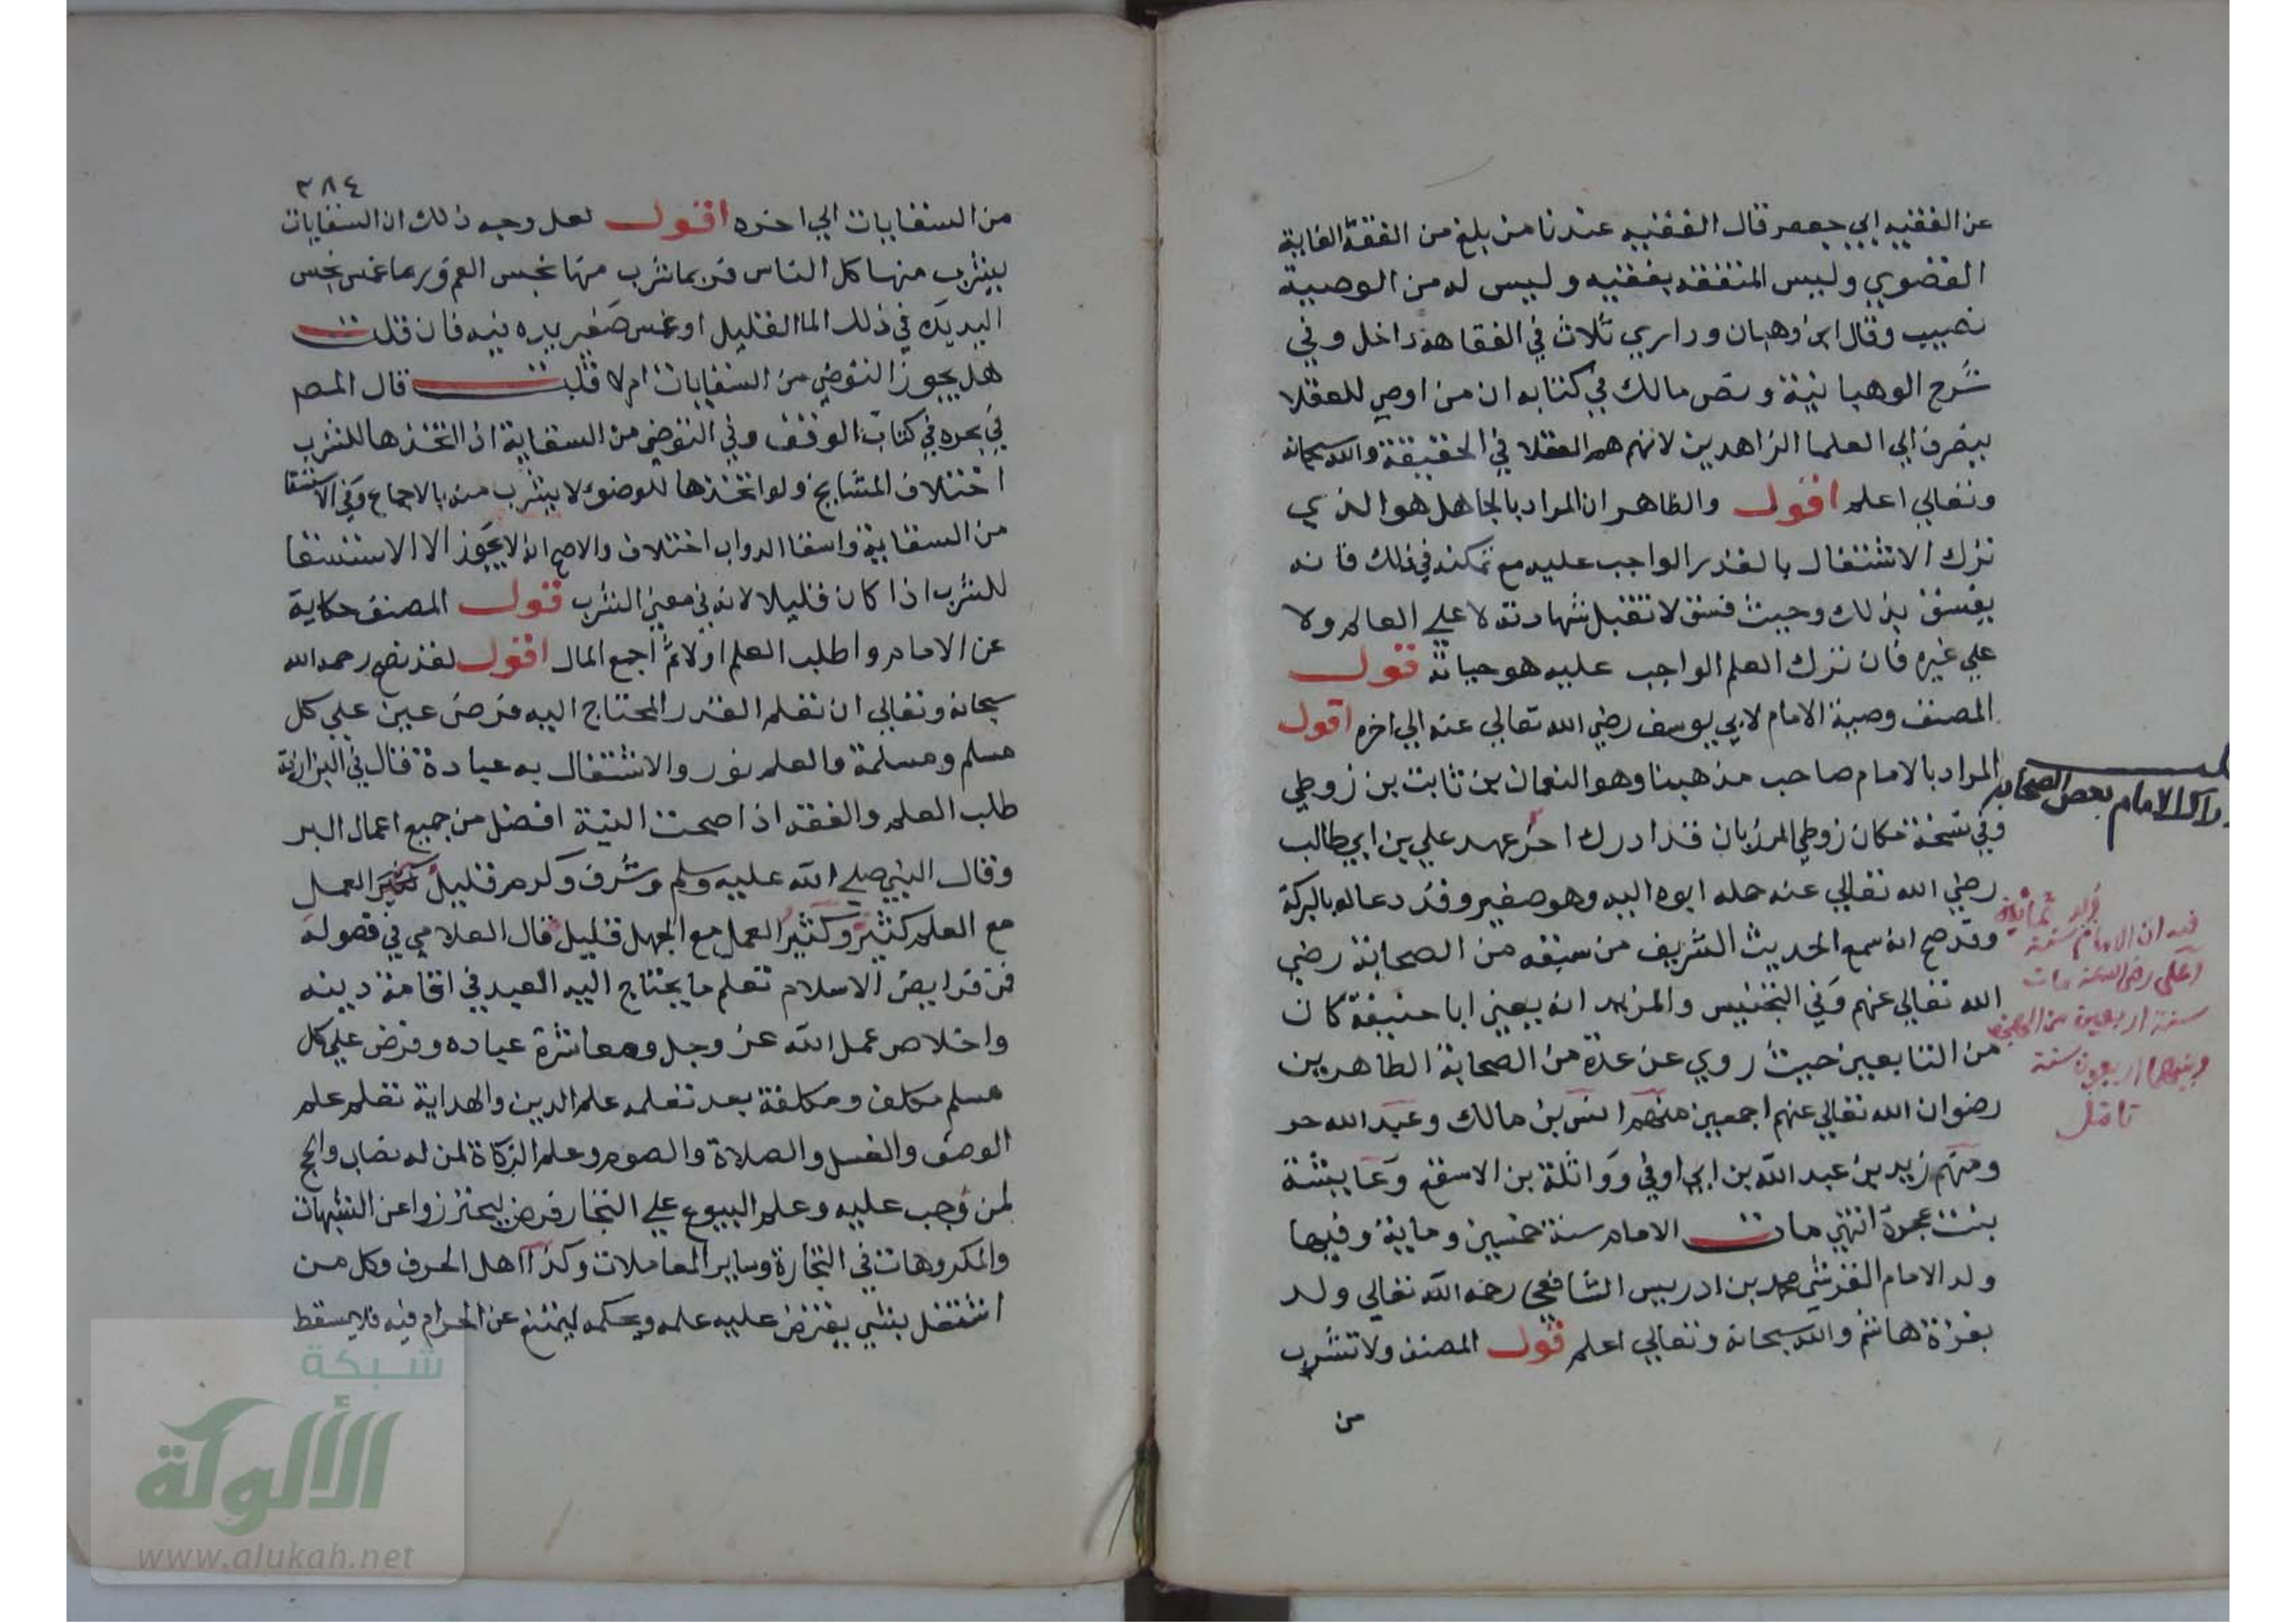 عن الفقيه ابي جعفر قال الفقيه عندنا من بلغ من الفقه الغاية
القصوي وليس المتفقه بفقيه وليس له من الوصية
نصيب وقال ابن وهبان وداري ثلاث في الفقاهة داخل وفي
شرح الوهبانية ونص مالك في كتابه ان من اوصي للعقلا
يصرف الي العلما الزاهدين لانهم هم العقلا في الحقيقة والله سبحانه
وتعالي اعلم اقول والظاهر ان المراد بالجاهل هو الذي
ترك الاشتغال بالقدر الواجب عليه مع تمكنه في ذلك فانه
يفسق بذلك وحيث فسق لا تقبل شهادته لا علي العالم ولا
علي غيره فان ترك العلم الواجب عليه هو حياته قول
المصنف وصية الامام لابي يوسف رضي الله تعالي عنه الي اخره اقول
المراد بالامام صاحب مذهبنا وهو النعمان بن ثابت بن زوطي
وفي نسخة مكان زوطي المرزبان قد ادرك اخر عهد علي بن ابي طالب
رضي الله تعالي عنه حمله ابوه اليه وهو صغير وقد دعا له بالبركة
وقد صح انه سمع الحديث الشريف من سبعة من الصحابة رضي
الله تعالي عنهم وفي التجنيس والمزيد انه يعني ابا حنيفة كان
من التابعين حيث روي عن عدة من الصحابة الطاهرين
رضوان الله تعالي عنهم اجمعين منهم انس بن مالك وعبد الله حر
ومنهم زيد بن عبد الله بن ابي اوفي وواثلة بن الاسقع وعايشة
بنت عجرة انتهي مات الامام سنة خمسين وماية وفيها
ولد الامام القرشي محمد بن ادريس الشافعي رحمه الله تعالي ولد
بغزة هاشم والله سبحانه وتعالي اعلم قول المصنف ولا تشرب
من
الامام بعض الصحابه
فيه ان الامام
ولد سنة ثمانين
علي رضي الله عنه مات
سنة اربعين من الهجرة
وبينهما اربعون سنة
تامل
٣٨٤
من السقايات الي اخره اقول لعل وجه ذلك ان السقايات
يشرب منها كل الناس فربما شرب منها نجس الفم وربما غمس نجس
اليد يده في ذلك الما القليل او غمس صغير يده فيه فان قلت
هل يجوز التوضي من السقايات ام لا قلت قال المص
في بحره في كتاب الوقف وفي التوضي من السقاية اذا اتخذها للشرب
اختلاف المشايخ ولو اتخذها للوضوء لا يشرب منه بالاجماع وفي الاستقا
من السقاية واسقا الدواب اختلاف والاصح انه لا يجوز الا الاستسقا
للشرب اذا كان قليلا لانه في معني الشرب قول المصنف حكاية
عن الامام واطلب العلم اولا ثم اجمع المال اقول لقد نصح رحمه الله
سبحانه وتعالي ان تعلم القدر المحتاج اليه فرض عين علي كل
مسلم ومسلمة والعلم نور والاشتغال به عبادة قال في البزازية
طلب العلم والفقه اذا صحت النية افضل من جميع اعمال البر
وقال النبي صلي الله عليه وسلم وشرف وكرم قليل العمل
مع العلم كثير وكثير العمل مع الجهل قليل قال العلامي في فصوله
من فرايض الاسلام تعلم ما يحتاج اليه العبد في اقامة دينه
واخلاص عمل الله عز وجل ومعاشرة عباده وفرض علي كل
مسلم مكلف ومكلفة بعد تعلمه علم الدين والهداية تعلم علم
الوضو والغسل والصلاة والصوم وعلم الزكاة لمن له نصاب والحج
لمن وجب عليه وعلم البيوع علي التجار فرض ليحترزوا عن الشبهات
والمكروهات في التجارة وساير المعاملات وكذا اهل الحرف وكل من
اشتغل بشي يفترض عليه علمه وحكمه ليمتنع عن الحرام فيه فلا يسقط
شبكة
الألوكة
www.alukah.net